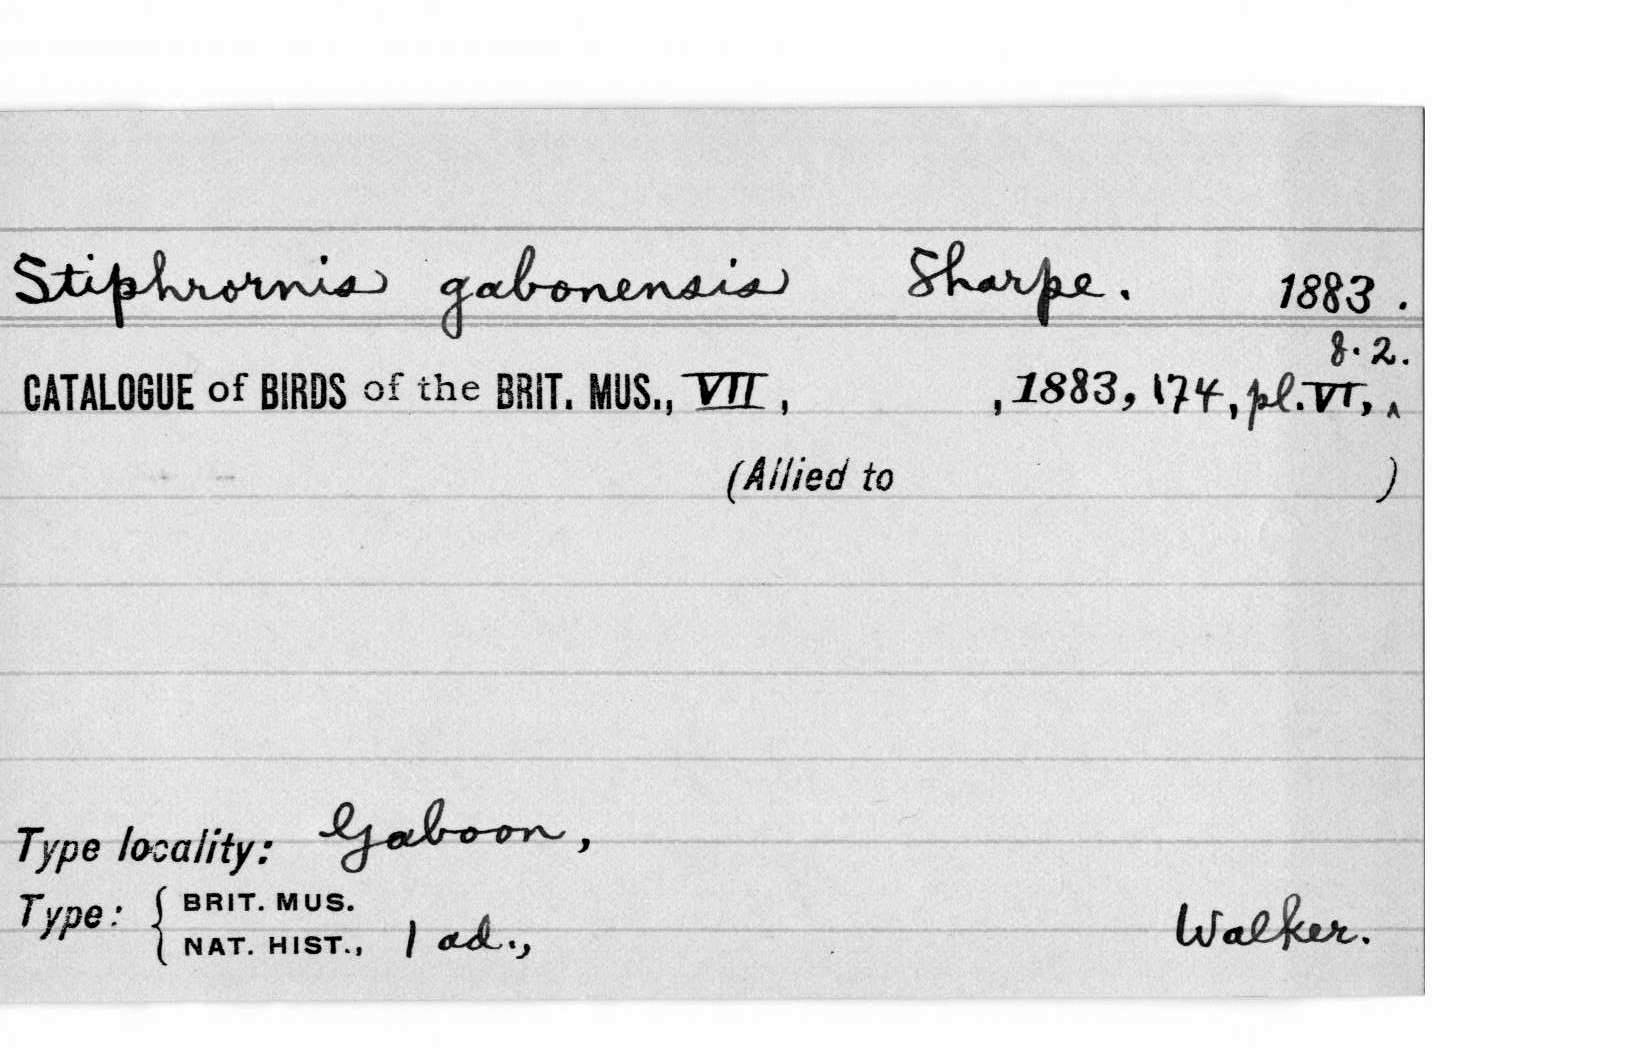 Stiphrornis gabonensis Sharpe. 1883.
8.2.
CATALOGUE of BIRDS of the BRIT. MUS., VII, , 1883, 174, pl. VI, ^
(Allied to )
Type locality: Gaboon,
Type: { BRIT. MUS.
NAT. HIST., 1 ad., Walker.